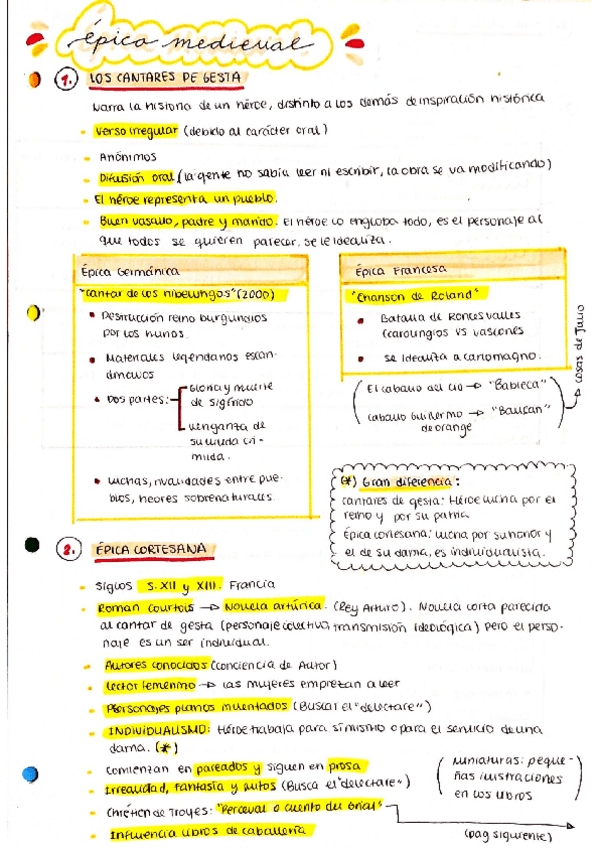 épica medieval
1. LOS CANTARES DE GESTA
Narra la historia de un héroe, distinto a los demás de inspiración histórica
- Verso irregular (debido al carácter oral)
- Anónimos
- Difusión oral (la gente no sabía leer ni escribir, la obra se va modificando)
- El héroe representa un pueblo.
- Buen vasallo, padre y marido. El héroe lo engloba todo, es el personaje al
que todos se quieren parecer, se le idealiza.
Épica Germánica
"Cantar de los nibelungos" (2000)
• Destrucción reino burgundios
por los hunos.
• Materiales legendarios escan-
dinavos
• Dos partes:
Gloria y muerte
de Sigfrido
venganza de
su viuda Cri-
milda.
• Luchas, rivalidades entre pue-
blos, heores sobrenaturales.
Épica Francesa
"Chanson de Roland"
• Batalla de Roncesvalles
(carolingios vs vascones
• se idealiza a carlomagno.
(El caballo del Cid → "Babieca"
caballo Guillermo → "Baucan")
de orange
→ cosas de Julio
(*) Gran diferencia:
Cantares de gesta: Héroe lucha por el
reino y por su patria
Épica cortesana: lucha por su honor y
el de su dama, es individualista.
2. ÉPICA CORTESANA
- Siglos S. XII y XIII. Francia
- Roman courtois → Novela artúrica. (Rey Arturo). Novela corta parecida
al cantar de gesta (personaje colectivo, transmisión ideológica) pero el perso-
naje es un ser individual.
- Autores conocidos (conciencia de Autor)
- Lector femenino → las mujeres empiezan a leer
- Personajes planos inventados (Buscar el "delectare")
- INDIVIDUALISMO: Héroe trabaja para sí mismo o para el servicio de una
dama. (*)
- Comienzan en pareados y siguen en prosa
- Irrealidad, fantasía y mitos (Busca el "delectare")
(Miniaturas: peque-
ñas ilustraciones
en los libros)
- Chrétien de Troyes: "Perceval o cuento del Grial"
- Influencia libros de caballería
(pag siguiente)